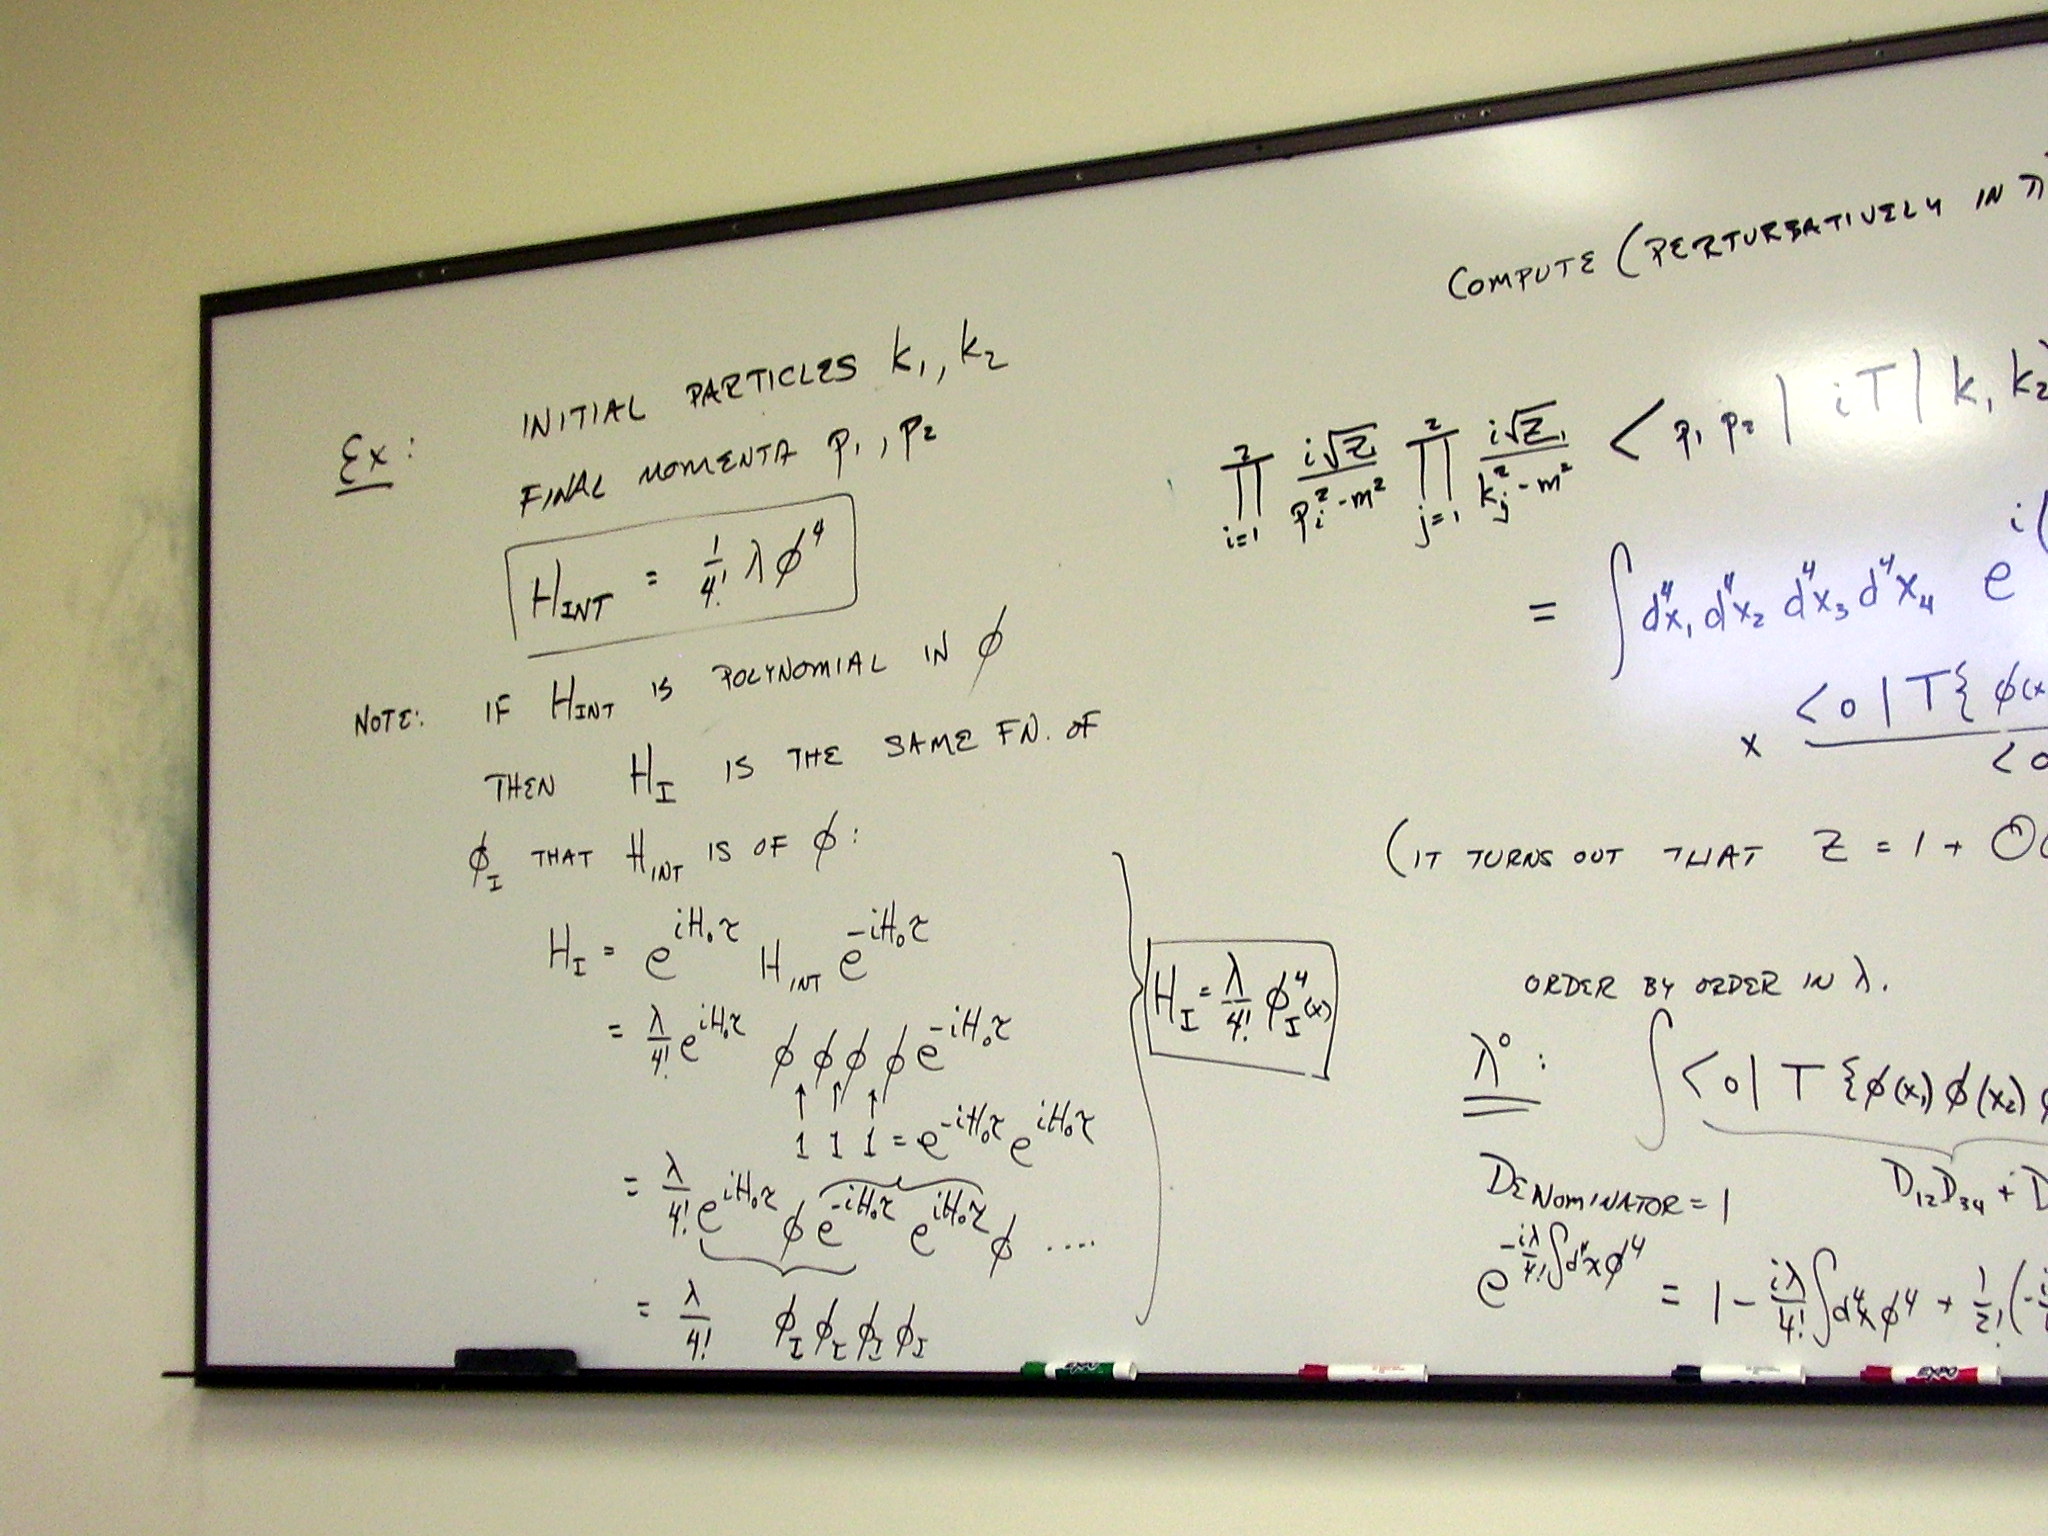 Ex: INITIAL PARTICLES k₁, k₂
FINAL MOMENTA p₁, p₂
H_INT = 1/4! λ φ⁴
NOTE: IF H_INT IS POLYNOMIAL IN φ
THEN H_I IS THE SAME FN. OF
φ_I THAT H_INT IS OF φ:
H_I = e^{iH₀τ} H_INT e^{-iH₀τ}
= λ/4! e^{iH₀τ} φ φ φ φ e^{-iH₀τ}
↑ ↑ ↑
1 1 1 = e^{-iH₀τ} e^{iH₀τ}
= λ/4! e^{iH₀τ} φ e^{-iH₀τ} e^{iH₀τ} φ ....
= λ/4! φ_I φ_I φ_I φ_I
H_I = λ/4! φ_I⁴(x)
COMPUTE (PERTURBATIVELY IN λ
∏_{i=1}^{2} i√Z/(p_i² - m²) ∏_{j=1}^{2} i√Z/(k_j² - m²) <p₁ p₂ | iT | k₁ k₂>
= ∫ d⁴x₁ d⁴x₂ d⁴x₃ d⁴x₄ e^{i(
× <0|T{φ(x
<0
(IT TURNS OUT THAT Z = 1 + O(
ORDER BY ORDER IN λ.
λ⁰: ∫ <0| T {φ(x₁) φ(x₂) φ
DENOMINATOR = 1 D₁₂D₃₄ + D
e^{-iλ/4! ∫d⁴x φ⁴} = 1 - iλ/4! ∫d⁴x φ⁴ + 1/2! (-i
EXPO
EXPO